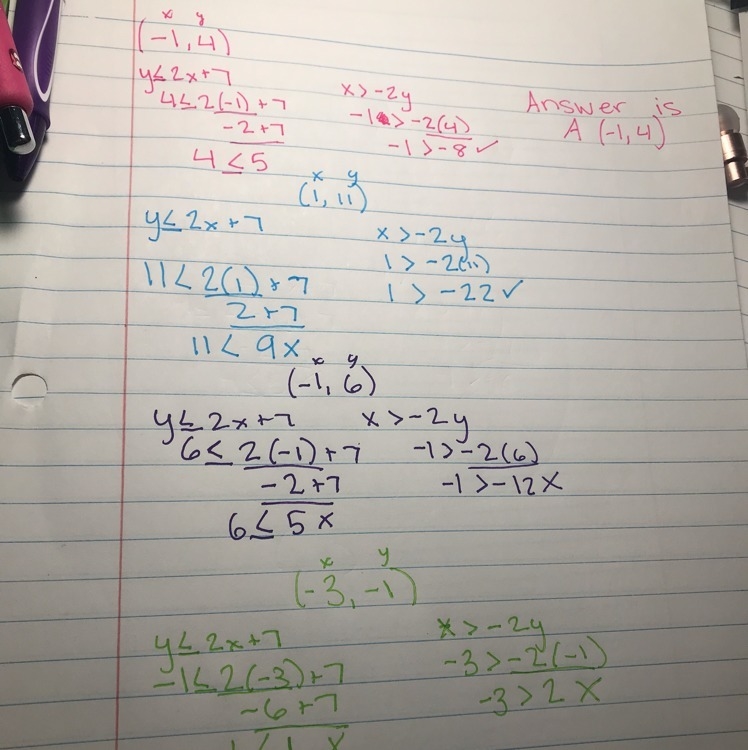 x y
(-1, 4)
y ≤ 2x+7
4 ≤ 2(-1)+7
-2+7
4 ≤ 5
x > -2y
-1 > -2(4)
-1 > -8 ✓
Answer is
A (-1, 4)
x y
(1, 11)
y ≤ 2x+7
11 < 2(1)+7
2+7
11 < 9 x
x > -2y
1 > -2(11)
1 > -22 ✓
x y
(-1, 6)
y ≤ 2x+7
6 ≤ 2(-1)+7
-2+7
6 ≤ 5 x
x > -2y
-1 > -2(6)
-1 > -12 x
x y
(-3, -1)
y ≤ 2x+7
-1 ≤ 2(-3)+7
-6+7
x > -2y
-3 > -2(-1)
-3 > 2 x